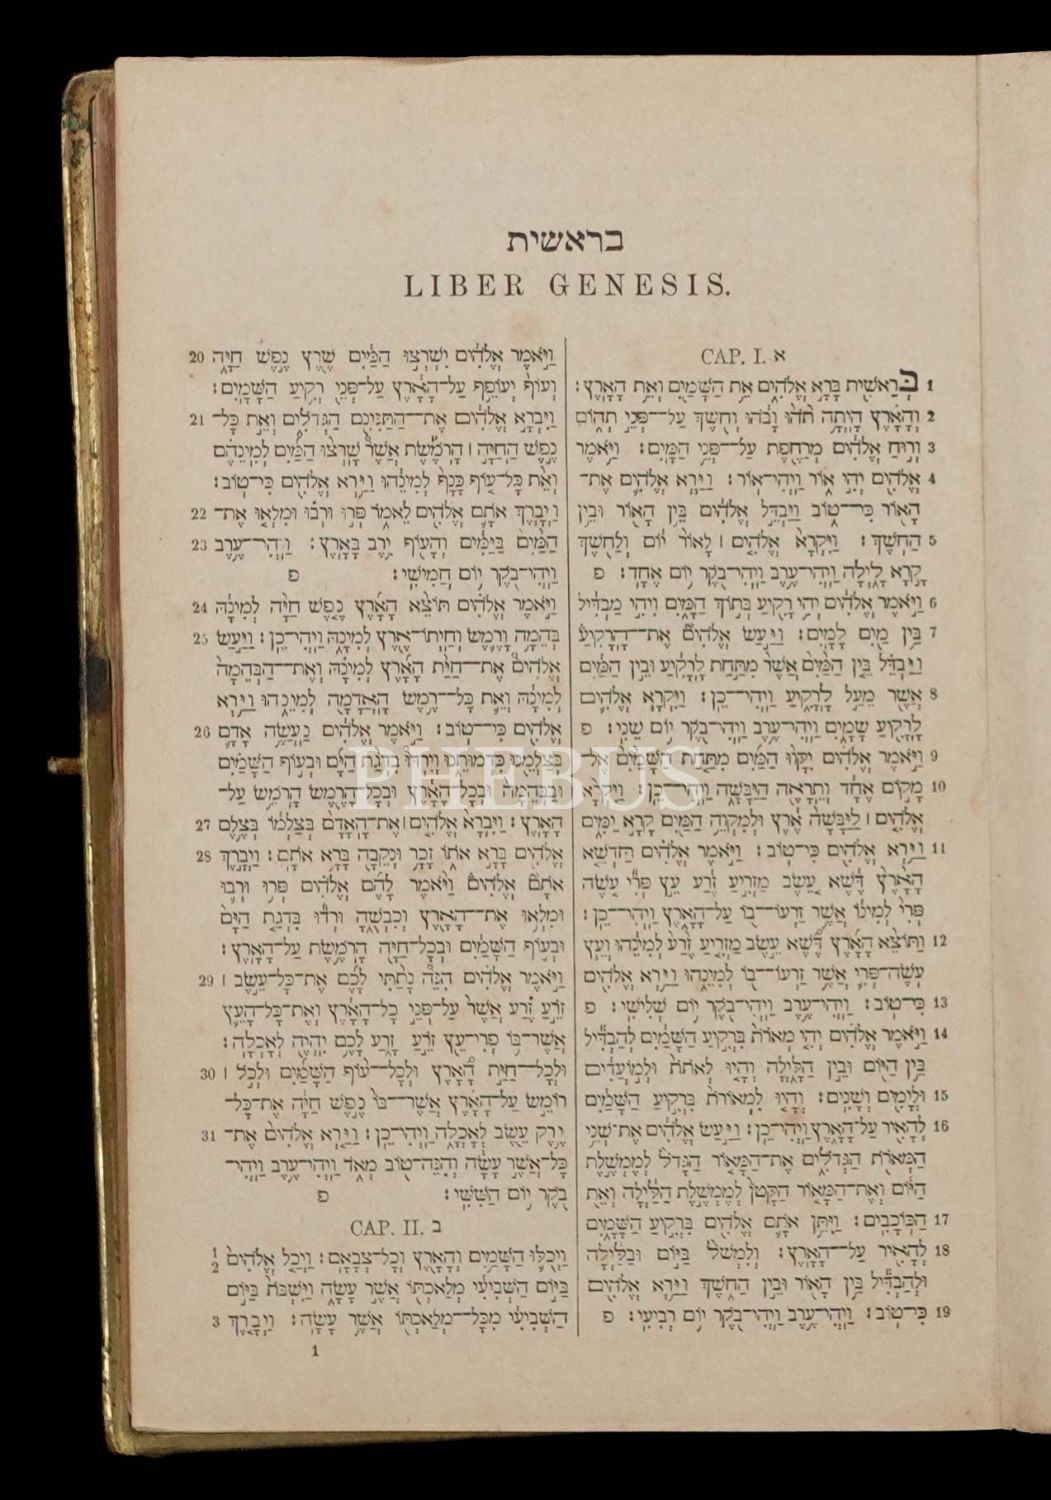 בראשית
LIBER GENESIS.
CAP. I. א
1 בְּרֵאשִׁית בָּרָא אֱלֹהִים אֵת הַשָּׁמַיִם וְאֵת הָאָרֶץ׃
2 וְהָאָרֶץ הָיְתָה תֹהוּ וָבֹהוּ וְחֹשֶׁךְ עַל־פְּנֵי תְהוֹם
3 וְרוּחַ אֱלֹהִים מְרַחֶפֶת עַל־פְּנֵי הַמָּיִם׃ וַיֹּאמֶר
4 אֱלֹהִים יְהִי אוֹר וַיְהִי־אוֹר׃ וַיַּרְא אֱלֹהִים אֶת־
הָאוֹר כִּי־טוֹב וַיַּבְדֵּל אֱלֹהִים בֵּין הָאוֹר וּבֵין
5 הַחֹשֶׁךְ׃ וַיִּקְרָא אֱלֹהִים ׀ לָאוֹר יוֹם וְלַחֹשֶׁךְ
קָרָא לָיְלָה וַיְהִי־עֶרֶב וַיְהִי־בֹקֶר יוֹם אֶחָד׃ פ
6 וַיֹּאמֶר אֱלֹהִים יְהִי רָקִיעַ בְּתוֹךְ הַמָּיִם וִיהִי מַבְדִּיל
7 בֵּין מַיִם לָמָיִם׃ וַיַּעַשׂ אֱלֹהִים אֶת־הָרָקִיעַ
וַיַּבְדֵּל בֵּין הַמַּיִם אֲשֶׁר מִתַּחַת לָרָקִיעַ וּבֵין הַמַּיִם
8 אֲשֶׁר מֵעַל לָרָקִיעַ וַיְהִי־כֵן׃ וַיִּקְרָא אֱלֹהִים
לָרָקִיעַ שָׁמָיִם וַיְהִי־עֶרֶב וַיְהִי־בֹקֶר יוֹם שֵׁנִי׃ פ
9 וַיֹּאמֶר אֱלֹהִים יִקָּווּ הַמַּיִם מִתַּחַת הַשָּׁמַיִם אֶל־
10 מָקוֹם אֶחָד וְתֵרָאֶה הַיַּבָּשָׁה וַיְהִי־כֵן׃ וַיִּקְרָא
אֱלֹהִים ׀ לַיַּבָּשָׁה אֶרֶץ וּלְמִקְוֵה הַמַּיִם קָרָא יַמִּים
11 וַיַּרְא אֱלֹהִים כִּי־טוֹב׃ וַיֹּאמֶר אֱלֹהִים תַּדְשֵׁא
הָאָרֶץ דֶּשֶׁא עֵשֶׂב מַזְרִיעַ זֶרַע עֵץ פְּרִי עֹשֶׂה
פְּרִי לְמִינוֹ אֲשֶׁר זַרְעוֹ־בוֹ עַל־הָאָרֶץ וַיְהִי־כֵן׃
12 וַתּוֹצֵא הָאָרֶץ דֶּשֶׁא עֵשֶׂב מַזְרִיעַ זֶרַע לְמִינֵהוּ וְעֵץ
עֹשֶׂה־פְּרִי אֲשֶׁר זַרְעוֹ־בוֹ לְמִינֵהוּ וַיַּרְא אֱלֹהִים
13 כִּי־טוֹב׃ וַיְהִי־עֶרֶב וַיְהִי־בֹקֶר יוֹם שְׁלִישִׁי׃ פ
14 וַיֹּאמֶר אֱלֹהִים יְהִי מְאֹרֹת בִּרְקִיעַ הַשָּׁמַיִם לְהַבְדִּיל
בֵּין הַיּוֹם וּבֵין הַלָּיְלָה וְהָיוּ לְאֹתֹת וּלְמוֹעֲדִים
15 וּלְיָמִים וְשָׁנִים׃ וְהָיוּ לִמְאוֹרֹת בִּרְקִיעַ הַשָּׁמַיִם
16 לְהָאִיר עַל־הָאָרֶץ וַיְהִי־כֵן׃ וַיַּעַשׂ אֱלֹהִים אֶת־שְׁנֵי
הַמְּאֹרֹת הַגְּדֹלִים אֶת־הַמָּאוֹר הַגָּדֹל לְמֶמְשֶׁלֶת
הַיּוֹם וְאֶת־הַמָּאוֹר הַקָּטֹן לְמֶמְשֶׁלֶת הַלַּיְלָה וְאֵת
17 הַכּוֹכָבִים׃ וַיִּתֵּן אֹתָם אֱלֹהִים בִּרְקִיעַ הַשָּׁמָיִם
18 לְהָאִיר עַל־הָאָרֶץ׃ וְלִמְשֹׁל בַּיּוֹם וּבַלַּיְלָה
וּלֲהַבְדִּיל בֵּין הָאוֹר וּבֵין הַחֹשֶׁךְ וַיַּרְא אֱלֹהִים
19 כִּי־טוֹב׃ וַיְהִי־עֶרֶב וַיְהִי־בֹקֶר יוֹם רְבִיעִי׃ פ
20 וַיֹּאמֶר אֱלֹהִים יִשְׁרְצוּ הַמַּיִם שֶׁרֶץ נֶפֶשׁ חַיָּה
וְעוֹף יְעוֹפֵף עַל־הָאָרֶץ עַל־פְּנֵי רְקִיעַ הַשָּׁמָיִם׃
21 וַיִּבְרָא אֱלֹהִים אֶת־הַתַּנִּינִם הַגְּדֹלִים וְאֵת כָּל־
נֶפֶשׁ הַחַיָּה ׀ הָרֹמֶשֶׂת אֲשֶׁר שָׁרְצוּ הַמַּיִם לְמִינֵהֶם
וְאֵת כָּל־עוֹף כָּנָף לְמִינֵהוּ וַיַּרְא אֱלֹהִים כִּי־טוֹב׃
22 וַיְבָרֶךְ אֹתָם אֱלֹהִים לֵאמֹר פְּרוּ וּרְבוּ וּמִלְאוּ אֶת־
23 הַמַּיִם בַּיַּמִּים וְהָעוֹף יִרֶב בָּאָרֶץ׃ וַיְהִי־עֶרֶב
וַיְהִי־בֹקֶר יוֹם חֲמִישִׁי׃ פ
24 וַיֹּאמֶר אֱלֹהִים תּוֹצֵא הָאָרֶץ נֶפֶשׁ חַיָּה לְמִינָהּ
25 בְּהֵמָה וָרֶמֶשׂ וְחַיְתוֹ־אֶרֶץ לְמִינָהּ וַיְהִי־כֵן׃ וַיַּעַשׂ
אֱלֹהִים אֶת־חַיַּת הָאָרֶץ לְמִינָהּ וְאֶת־הַבְּהֵמָה
לְמִינָהּ וְאֵת כָּל־רֶמֶשׂ הָאֲדָמָה לְמִינֵהוּ וַיַּרְא
26 אֱלֹהִים כִּי־טוֹב׃ וַיֹּאמֶר אֱלֹהִים נַעֲשֶׂה אָדָם
בְּצַלְמֵנוּ כִּדְמוּתֵנוּ וְיִרְדּוּ בִדְגַת הַיָּם וּבְעוֹף הַשָּׁמַיִם
וּבַבְּהֵמָה וּבְכָל־הָאָרֶץ וּבְכָל־הָרֶמֶשׂ הָרֹמֵשׂ עַל־
27 הָאָרֶץ׃ וַיִּבְרָא אֱלֹהִים ׀ אֶת־הָאָדָם בְּצַלְמוֹ בְּצֶלֶם
28 אֱלֹהִים בָּרָא אֹתוֹ זָכָר וּנְקֵבָה בָּרָא אֹתָם׃ וַיְבָרֶךְ
אֹתָם אֱלֹהִים וַיֹּאמֶר לָהֶם אֱלֹהִים פְּרוּ וּרְבוּ
וּמִלְאוּ אֶת־הָאָרֶץ וְכִבְשֻׁהָ וּרְדוּ בִּדְגַת הַיָּם
וּבְעוֹף הַשָּׁמַיִם וּבְכָל־חַיָּה הָרֹמֶשֶׂת עַל־הָאָרֶץ׃
29 וַיֹּאמֶר אֱלֹהִים הִנֵּה נָתַתִּי לָכֶם אֶת־כָּל־עֵשֶׂב ׀
זֹרֵעַ זֶרַע אֲשֶׁר עַל־פְּנֵי כָל־הָאָרֶץ וְאֶת־כָּל־הָעֵץ
אֲשֶׁר־בּוֹ פְרִי־עֵץ זֹרֵעַ זָרַע לָכֶם יִהְיֶה לְאָכְלָה׃
30 וּלְכָל־חַיַּת הָאָרֶץ וּלְכָל־עוֹף הַשָּׁמַיִם וּלְכֹל ׀
רוֹמֵשׂ עַל־הָאָרֶץ אֲשֶׁר־בּוֹ נֶפֶשׁ חַיָּה אֶת־כָּל־
31 יֶרֶק עֵשֶׂב לְאָכְלָה וַיְהִי־כֵן׃ וַיַּרְא אֱלֹהִים אֶת־
כָּל־אֲשֶׁר עָשָׂה וְהִנֵּה־טוֹב מְאֹד וַיְהִי־עֶרֶב וַיְהִי־
בֹקֶר יוֹם הַשִּׁשִּׁי׃ פ
CAP. II. ב
1 2 וַיְכֻלּוּ הַשָּׁמַיִם וְהָאָרֶץ וְכָל־צְבָאָם׃ וַיְכַל אֱלֹהִים
בַּיּוֹם הַשְּׁבִיעִי מְלַאכְתּוֹ אֲשֶׁר עָשָׂה וַיִּשְׁבֹּת בַּיּוֹם
3 הַשְּׁבִיעִי מִכָּל־מְלַאכְתּוֹ אֲשֶׁר עָשָׂה׃ וַיְבָרֶךְ
1
PHEBUS